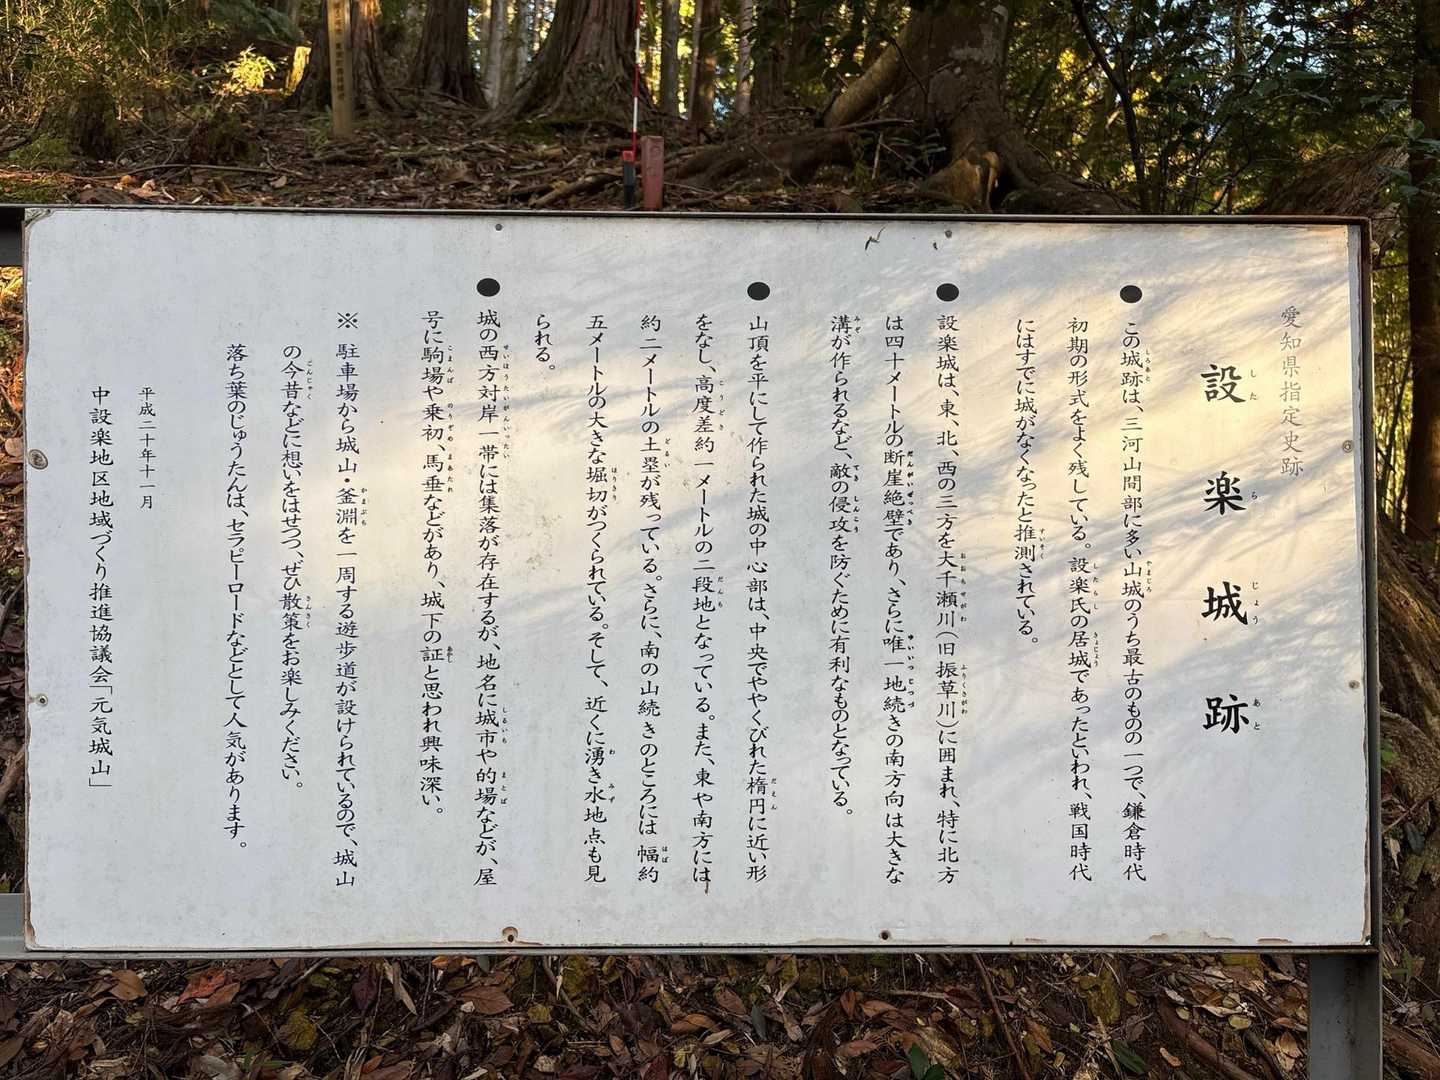 愛知県指定史跡
設楽城跡
したらじょうあと
●この城跡は、三河山間部に多い山城のうち最古のものの一つで、鎌倉時代
初期の形式をよく残している。設楽氏の居城であったといわれ、戦国時代
にはすでに城がなくなったと推測されている。
●設楽城は、東、北、西の三方を大千瀬川（旧振草川）に囲まれ、特に北方
は四十メートルの断崖絶壁であり、さらに唯一地続きの南方向は大きな
溝が作られるなど、敵の侵攻を防ぐために有利なものとなっている。
●山頂を平にして作られた城の中心部は、中央でややくびれた楕円に近い形
をなし、高度差約一メートルの二段地となっている。また、東や南方には
約二メートルの土塁が残っている。さらに、南の山続きのところには幅約
五メートルの大きな堀切がつくられている。そして、近くに湧き水地点も見
られる。
●城の西方対岸一帯には集落が存在するが、地名に城市や的場などが、屋
号に駒場や乗初、馬垂などがあり、城下の証と思われ興味深い。
※駐車場から城山・釜淵を一周する遊歩道が設けられているので、城山
の今昔などに想いをはせつつ、ぜひ散策をお楽しみください。
落ち葉のじゅうたんは、セラピーロードなどとして人気があります。
平成二十年十一月
中設楽地区地域づくり推進協議会「元気城山」